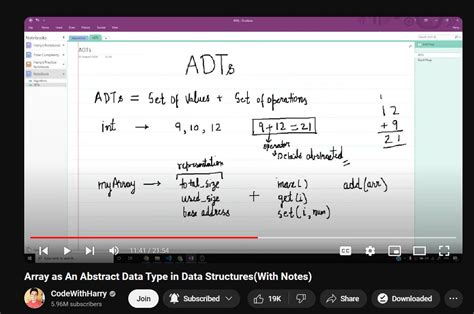 ADTs
ADTs
ADTs = Set of Values + Set of operations
int → 9, 10, 12
9+12 = 21
operator
→ Details abstracted
1
12
+ 9
21
representation
myArray → total_size
used_size
base address
+
max()
get(i)
set(i, num)
add(arr)
11:41 / 21:54
Array as An Abstract Data Type in Data Structures(With Notes)
CodeWithHarry
5.96M subscribers
Join
Subscribed
19K
Share
Downloaded